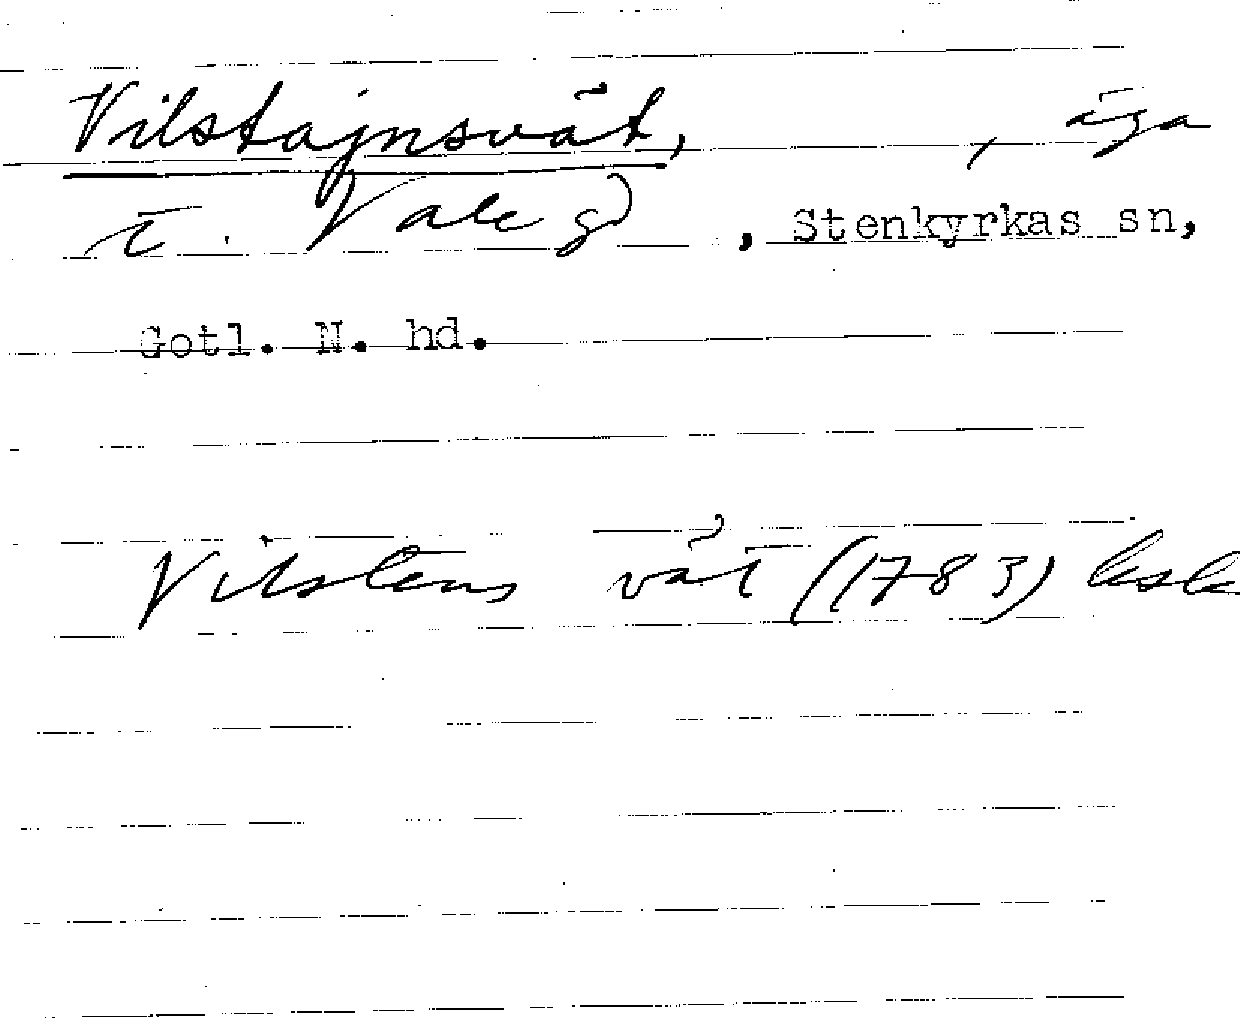 Vilstajnsvät, , äga
i Vale gd, Stenkyrkas sn,
Gotl. N. hd.
Vilstens vät (1783) lsk